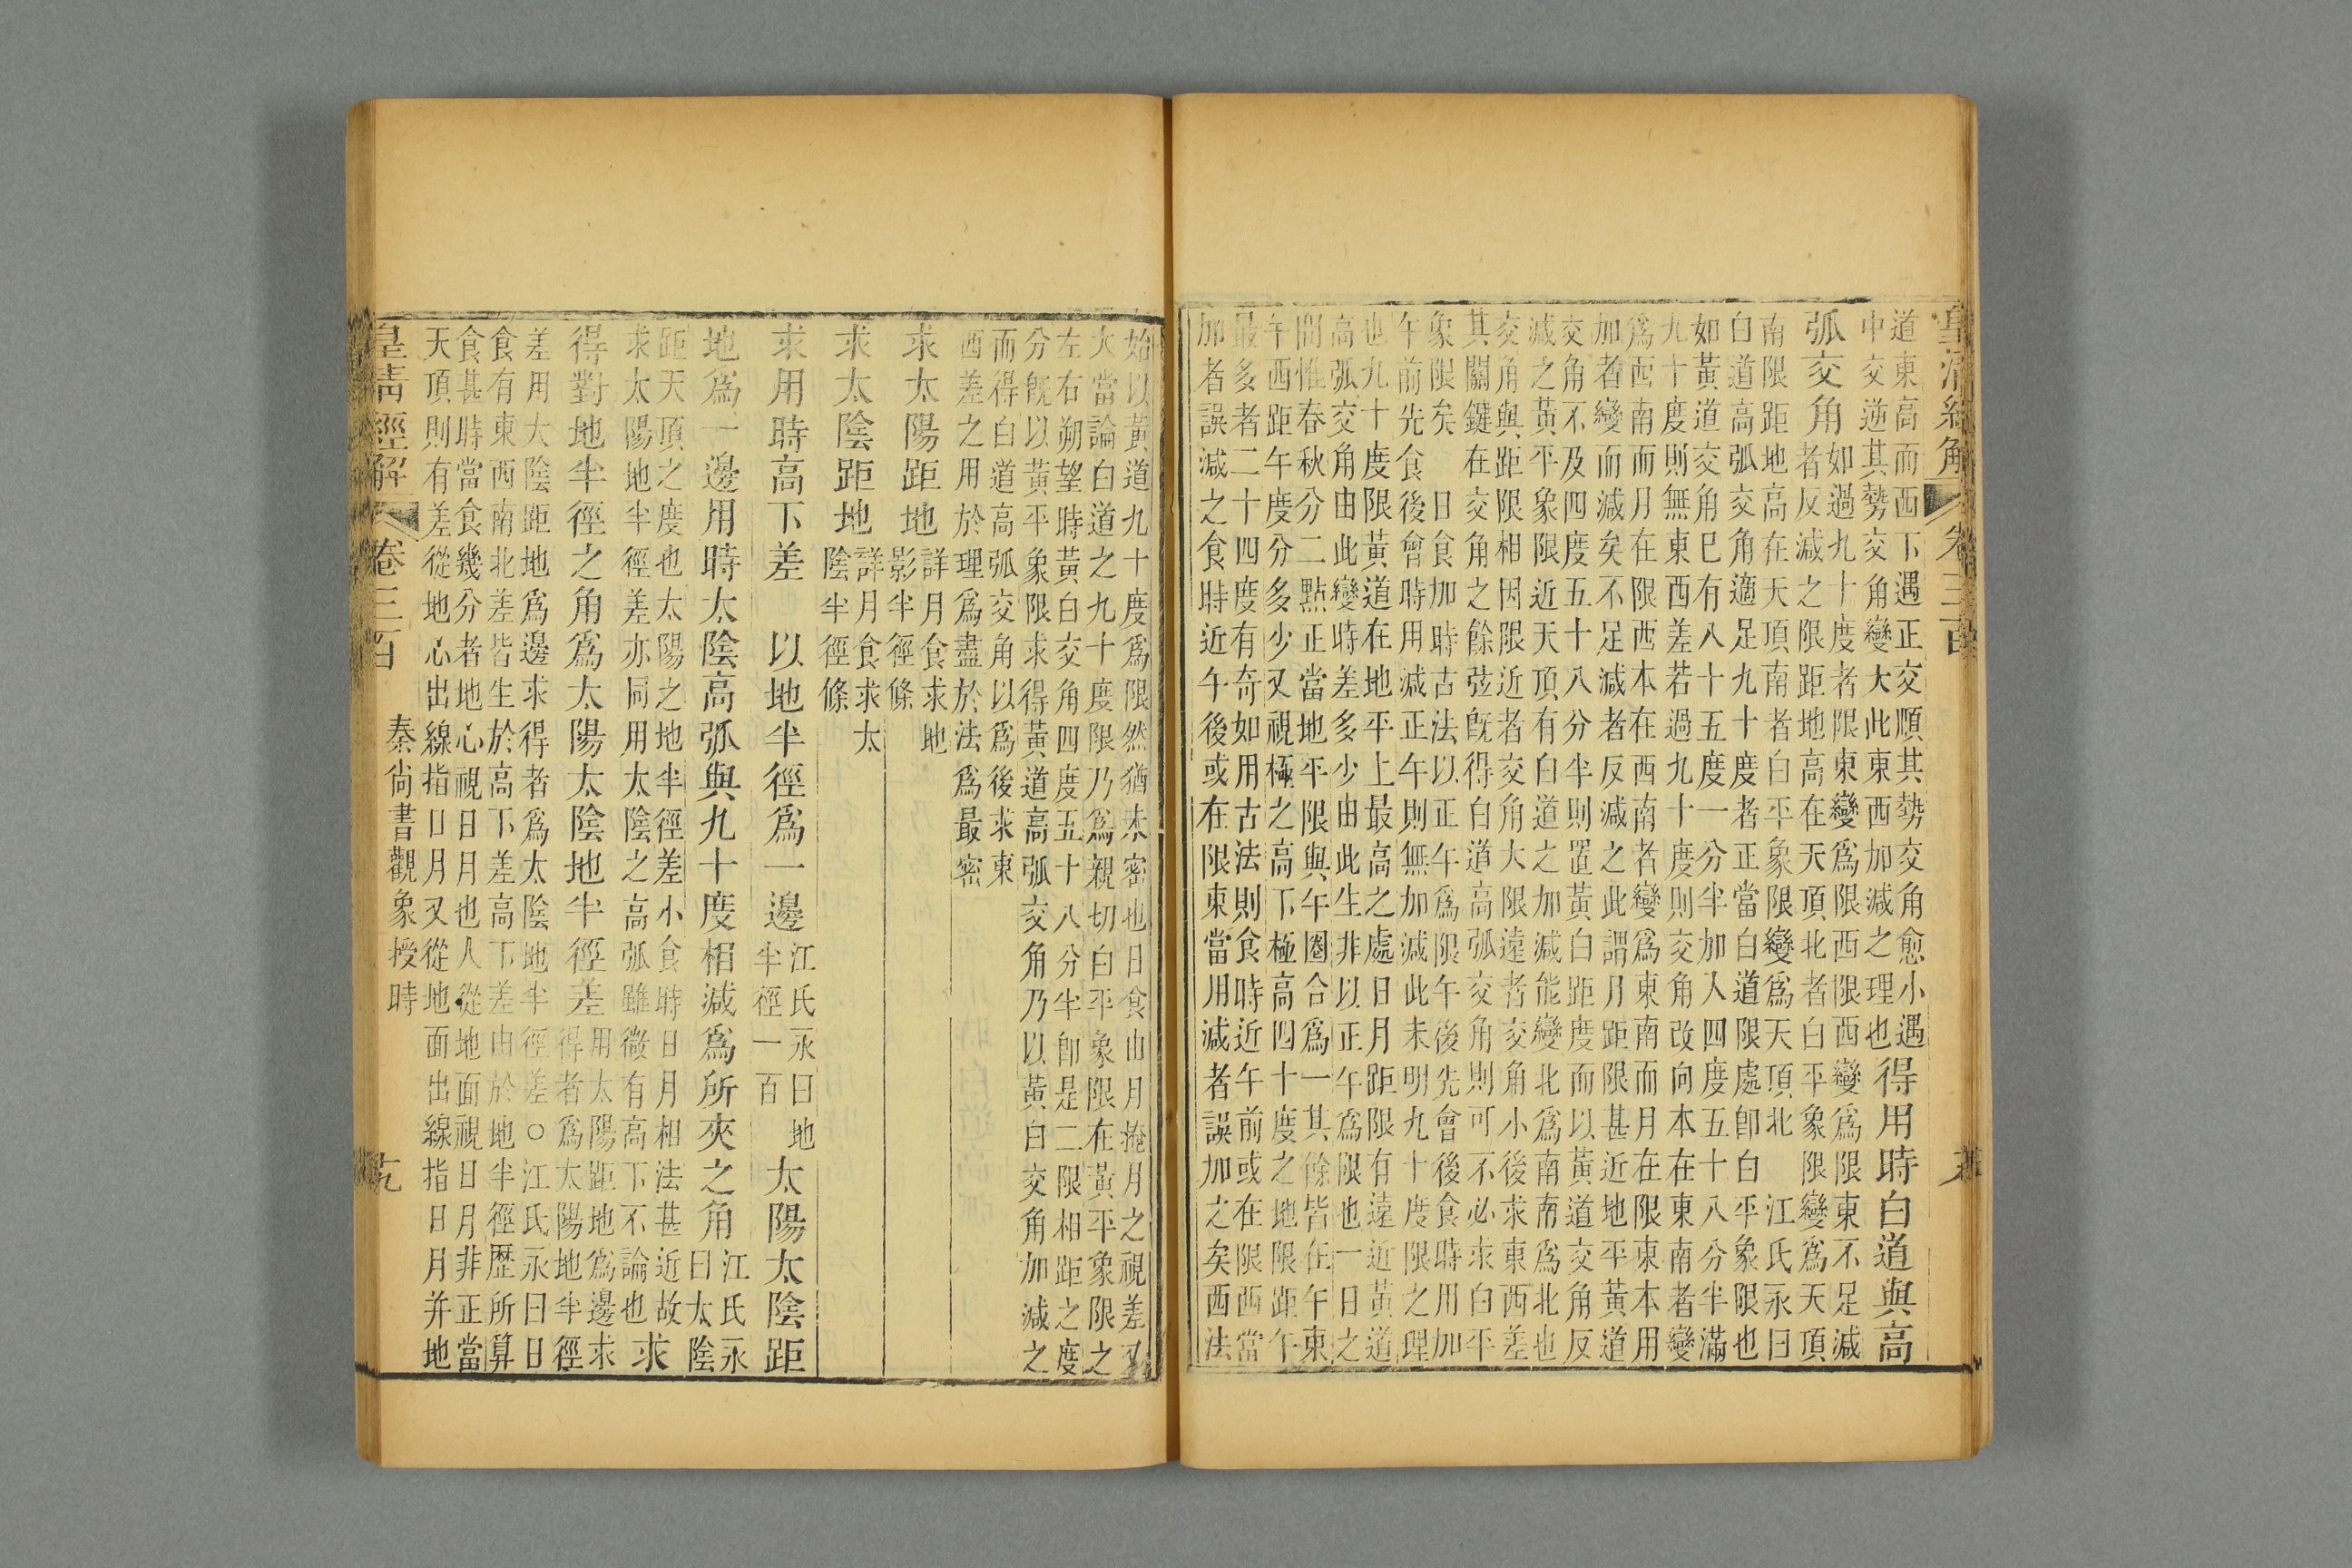 皇清經解 卷三百
道東高而西下遇正交順其勢交角愈小遇
中交逆其勢交角變大此東西加減之理也
得用時白道與高
弧交角
如過九十度者限東變爲限西限西變爲限東不足減
者反減之限距地高在天頂北者白平象限變爲天頂
南限距地高在天頂南者白平象限變爲天頂北 江氏永曰
白道高弧交角適足九十度者正當白道限處卽白平象限也
如黃道交角已有八十五度一分半加入四度五十八分半滿
九十度則無東西差若過九十度則交角改向本在東南者變
爲西南而月在限西本在西南者變爲東南而月在限東本用
加者變而減矣不足減者反減之此謂月距限甚近地平黃道
交角不及四度五十八分半則置黃白距度而以黃道交角反
減之黃平象限近天頂有白道之加減能變北爲南南爲北也
交角與距限相因限近者交角大限遠者交角小後求東西差
其關鍵在交角之餘弦旣得白道高弧交角則可不必求白平
象限矣 日食加時古法以正午爲限午後先會後食時用加
午前先食後會時用減正午則無加減此未明九十度限之理
也九十度限黃道在地平上最高之處日月距限有遠近黃道
高弧交角由此變時差多少由此生非以正午爲限也一日之
間惟春秋分二點正當地平限與午圈合爲一其餘皆在午東
午西距午度分多少又視極之高下極高四十度之地限距午
最多者二十四度有奇如用古法則食時近午前或在限西當
加者誤減之食時近午後或在限東當用減者誤加之矣西法
始以黃道九十度爲限然猶未密也日食由月掩月之視差又
大當論白道之九十度限乃爲親切白平象限在黃平象限之
左右朔望時黃白交角四度五十八分半卽是二限相距之度
分旣以黃平象限求得黃道高弧交角乃以黃白交角加減之
而得白道高弧交角以爲後求東
西差之用於理爲盡於法爲最密
求太陽距地
詳月食求地
影半徑條
求太陰距地
詳月食求太
陰半徑條
求用時高下差 以地半徑爲一邊
江氏永曰地
半徑一百
太陽太陰距
地爲一邊用時太陰高弧與九十度相減爲所夾之角
江氏永
曰太陰
距天頂之度也太陽之地半徑差小食時日月相法甚近故
求太陽地半徑差亦同用太陰之高弧雖微有高下不論也
求
得對地半徑之角爲太陽太陰地半徑差
用太陽距地爲邊求
得者爲太陽地半徑
差用太陰距地爲邊求得者爲太陰地半徑差○江氏永曰日
食有東西南北差皆生於高下差高下差由於地半徑歷所算
食甚時當食幾分者地心視日月也人從地面視日月非正當
天頂則有差從地心出線指日月又從地面出線指日月并地
皇清經解 卷三百 秦尙書觀象授時